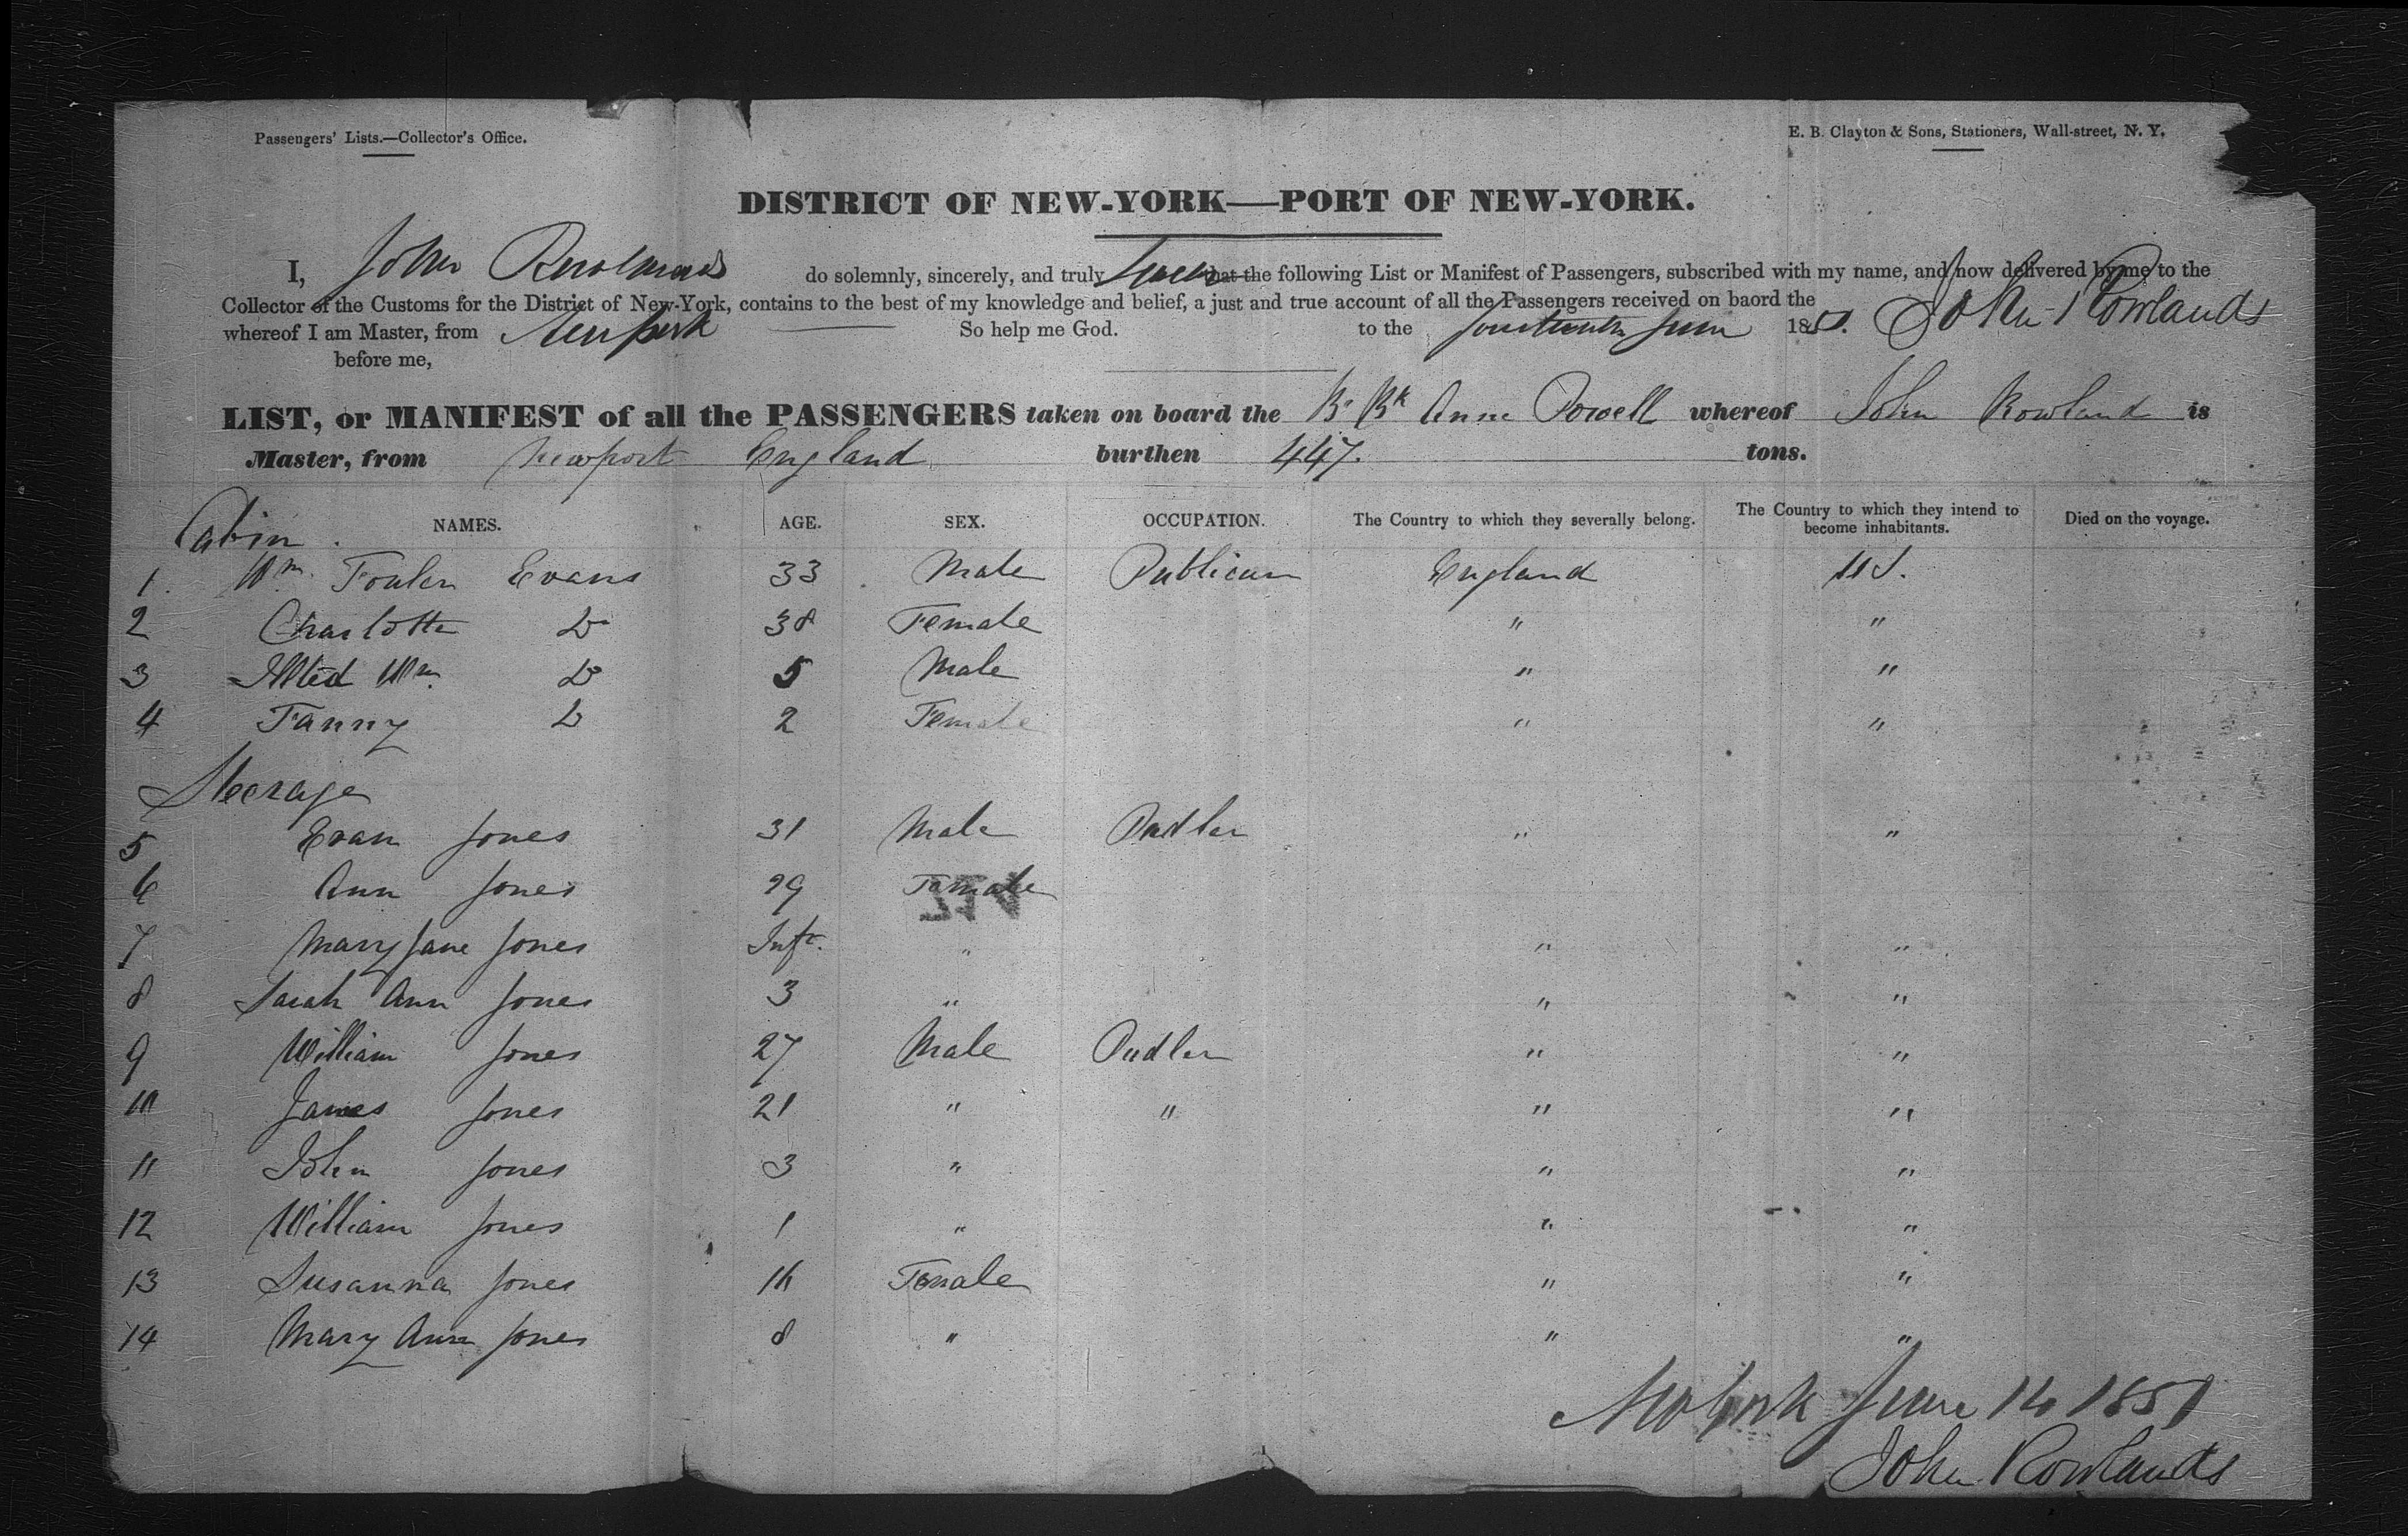 Passengers' Lists.—Collector's Office.
E. B. Clayton & Sons, Stationers, Wall-street, N. Y.
DISTRICT OF NEW-YORK—PORT OF NEW-YORK.
I, John Rowlands do solemnly, sincerely, and truly Swear that the following List or Manifest of Passengers, subscribed with my name, and now delivered by me to the
Collector of the Customs for the District of New-York, contains to the best of my knowledge and belief, a just and true account of all the Passengers received on baord the
whereof I am Master, from Newport So help me God. to the fourteenth June 1851. John Rowlands
before me,
LIST, or MANIFEST of all the PASSENGERS taken on board the Br Bk Anne Powell whereof John Rowland is
Master, from Newport England burthen 447. tons.
NAMES. AGE. SEX. OCCUPATION. The Country to which they severally belong. The Country to which they intend to become inhabitants. Died on the voyage.
Cabin.
1. Wm. Evans 33 Male Publican England US.
2 Charlotte Do 38 Female " "
3 Alfred Wm. Do 5 Male " "
4 Fanny Do 2 Female " "
Steerage
5 Evan Jones 31 Male Pudler " "
6 Ann Jones 29 Female
7 Mary Jane Jones Inft. " " "
8 Sarah Ann Jones 3 " " "
9 William Jones 27 Male Pudler " "
10 James Jones 21 " " " "
11 John Jones 3 " " "
12 William Jones 1 " " "
13 Susanna Jones 16 Female " "
14 Mary Ann Jones 8 " " "
New York June 14 1851
John Rowlands